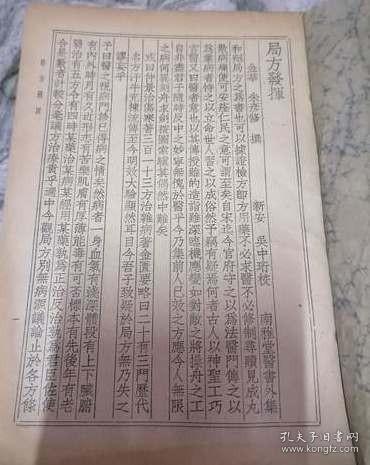 局方發揮
南雅堂醫書外集
金華 朱彥修 撰
新安 吳中珩校
和劑局方之為書也可以據證檢方即方用藥不必求醫不必修製尋贖見成丸
散病痛便可安痊仁民之意可謂至矣自宋迄今官府守之以為法醫門傳之以
為業病者恃之以立命世人習之以成俗然予竊有疑焉何者古人以神聖工巧
言醫又曰醫者意也以其傳授雖的造詣雖深臨機應變如對敵之將操舟之工
自非盡君子隨時反中之妙寧無愧於醫乎今乃集前人已效之方應今人無限
之病何異刻舟求劍按圖索驥冀其偶然中難矣
或曰仲景治傷寒著一百一十三方治雜病著金匱要略曰二十有三門歷代
名方汗牛充棟流傳至今明效大驗顯然耳目今吾子致疑於局方無乃失之
謬妄乎
予曰醫之視病問證已得病之情矣然病者一身血氣有淺深體段有上下臟腑
有內外時月有久近形志有苦樂肌膚有厚薄能毒有可否標本有先後年有老
弱治有五方令有四時某藥治某病某經用某藥孰為正治反治孰為君臣佐使
合是數者計較分毫議方治療貴乎適中今觀局方別無病源議論止於各方條
局方發揮
一
孔夫子旧书网